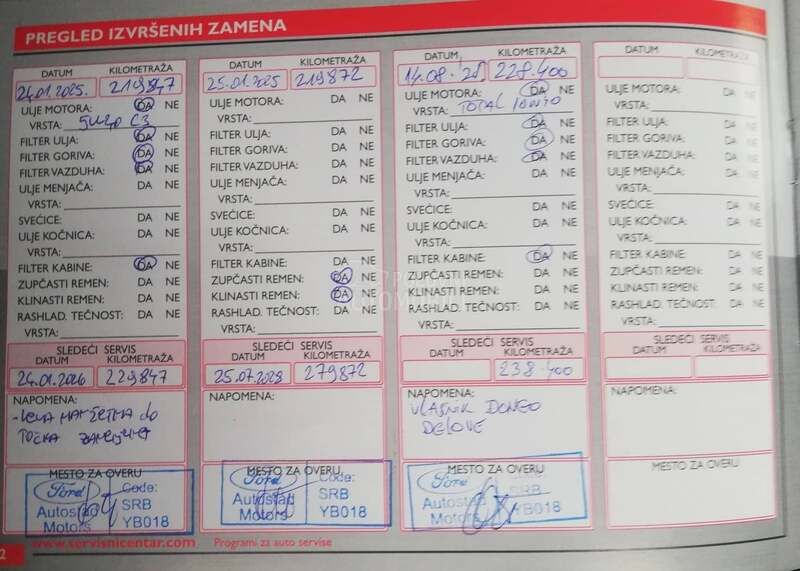 PREGLED IZVRŠENIH ZAMENA
DATUM KILOMETRAŽA
24.01.2025. 219847
ULJE MOTORA: DA NE
VRSTA: 5W20 C3
FILTER ULJA: DA NE
FILTER GORIVA: DA NE
FILTER VAZDUHA: DA NE
ULJE MENJAČA: DA NE
VRSTA:
SVEĆICE: DA NE
ULJE KOČNICA: DA NE
VRSTA:
FILTER KABINE: DA NE
ZUPČASTI REMEN: DA NE
KLINASTI REMEN: DA NE
RASHLAD. TEČNOST: DA NE
VRSTA:
SLEDEĆI SERVIS
DATUM KILOMETRAŽA
24.01.2026 229847
NAPOMENA:
-LEVA MANŽETNA do
TOČKA ZAMENJENA
MESTO ZA OVERU
Ford Code:
Autostad SRB
Motors YB018
DATUM KILOMETRAŽA
25.01.2025 219872
ULJE MOTORA: DA NE
VRSTA:
FILTER ULJA: DA NE
FILTER GORIVA: DA NE
FILTER VAZDUHA: DA NE
ULJE MENJAČA: DA NE
VRSTA:
SVEĆICE: DA NE
ULJE KOČNICA: DA NE
VRSTA:
FILTER KABINE: DA NE
ZUPČASTI REMEN: DA NE
KLINASTI REMEN: DA NE
RASHLAD. TEČNOST: DA NE
VRSTA:
SLEDEĆI SERVIS
DATUM KILOMETRAŽA
25.07.2028 279872
NAPOMENA:
MESTO ZA OVERU
Ford Code:
Autostad SRB
Motors YB018
DATUM KILOMETRAŽA
14.08.'25 228.400
ULJE MOTORA: DA NE
VRSTA: TOTAL 10W40
FILTER ULJA: DA NE
FILTER GORIVA: DA NE
FILTER VAZDUHA: DA NE
ULJE MENJAČA: DA NE
VRSTA:
SVEĆICE: DA NE
ULJE KOČNICA: DA NE
VRSTA:
FILTER KABINE: DA NE
ZUPČASTI REMEN: DA NE
KLINASTI REMEN: DA NE
RASHLAD. TEČNOST: DA NE
VRSTA:
SLEDEĆI SERVIS
DATUM KILOMETRAŽA
238.400
NAPOMENA:
VLASNIK DONEO
DELOVE
MESTO ZA OVERU
Ford Code:
Autostad SRB
Motors YB018
DATUM KILOMETRAŽA
ULJE MOTORA: DA NE
VRSTA:
FILTER ULJA: DA NE
FILTER GORIVA: DA NE
FILTER VAZDUHA: DA NE
ULJE MENJAČA: DA NE
VRSTA:
SVEĆICE: DA NE
ULJE KOČNICA: DA NE
VRSTA:
FILTER KABINE: DA NE
ZUPČASTI REMEN: DA NE
KLINASTI REMEN: DA NE
RASHLAD. TEČNOST: DA NE
VRSTA:
SLEDEĆI SERVIS
DATUM KILOMETRAŽA
NAPOMENA:
MESTO ZA OVERU
2 www.servisnicentar.com Programi za auto servise